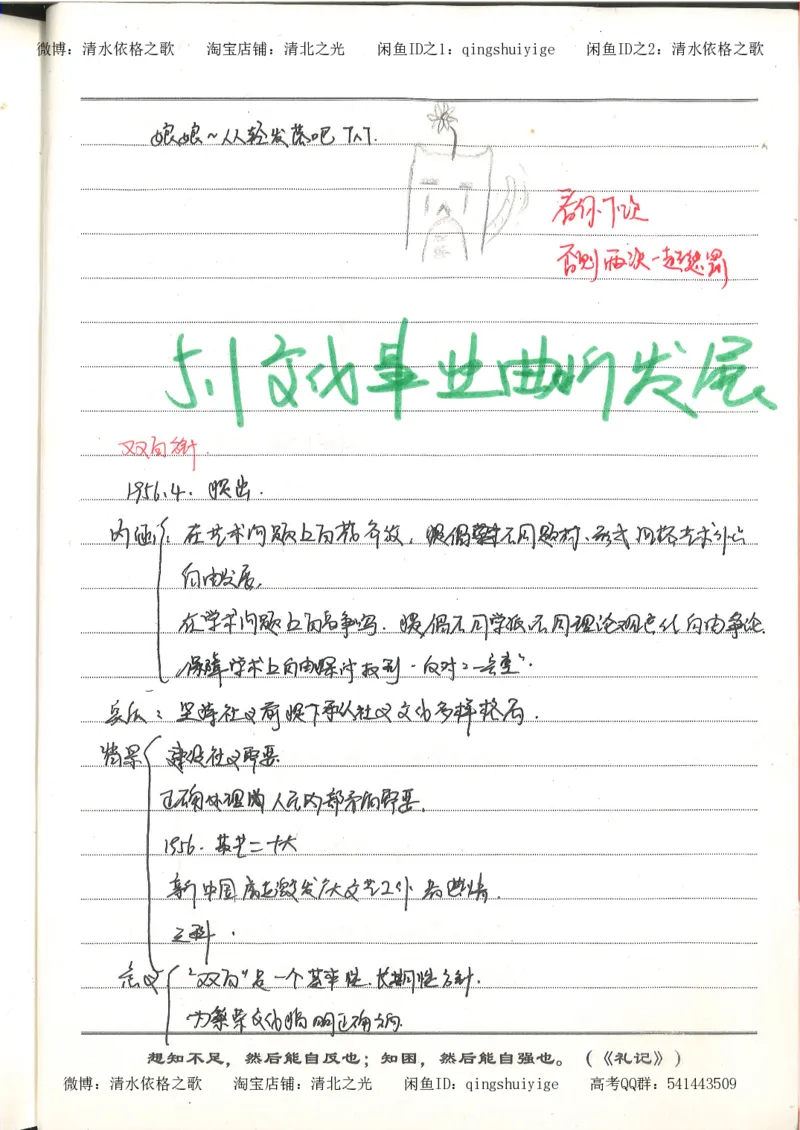 微博：清水依格之歌 淘宝店铺：清北之光 闲鱼ID之1：qingshuiyige 闲鱼ID之2：清水依格之歌
娘娘~从轻发落吧 T^T.
看你下次
否则两次一起惩罚
5.1文化事业曲折发展
双百方针.
1956.4. 提出.
内涵: 在艺术问题上百花齐放, 提倡不同题材、形式风格艺术
自由发展,
在学术问题上百家争鸣. 提倡不同学派不同理论观点 自由争论.
保障学术上自由探讨 反对
实质: 坚持社义前提下承认社义文化多样格局.
背景 建设社义需要.
正确处理 人民内部矛盾需要.
1956. 苏共二十大
新中国成立激发广大文艺工作者热情.
意义 "双百"是一个基本性.长期性方针.
为繁荣文化指明正确方向.
想知不足，然后能自反也；知困，然后能自强也。（《礼记》）
微博：清水依格之歌 淘宝店铺：清北之光 闲鱼ID：qingshuiyige 高考QQ群：541443509